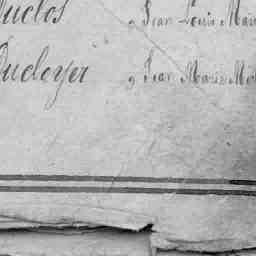 Duclos „ Jean Louis Mari
Ducloyer „ Jean Marie M